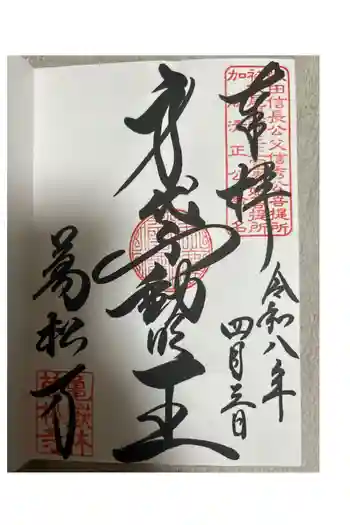 奉拝
田信長公父信秀公菩提所
令和八年
四月三日
身代不動明王
萬松寺
亀嶽林
萬松寺